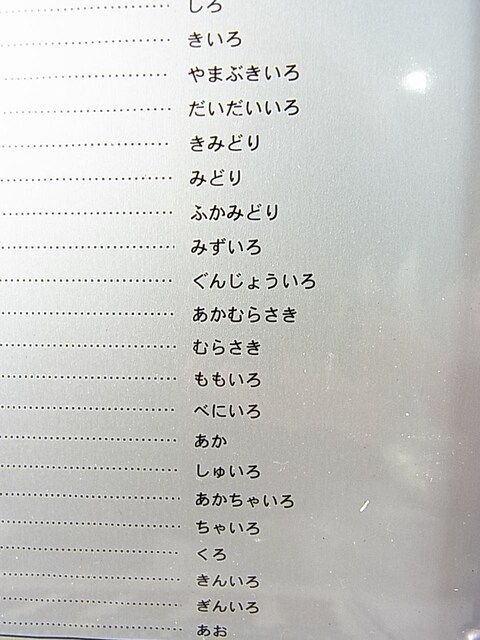 しろ
きいろ
やまぶきいろ
だいだいいろ
きみどり
みどり
ふかみどり
みずいろ
ぐんじょういろ
あかむらさき
むらさき
ももいろ
べにいろ
あか
しゅいろ
あかちゃいろ
ちゃいろ
くろ
きんいろ
ぎんいろ
あお